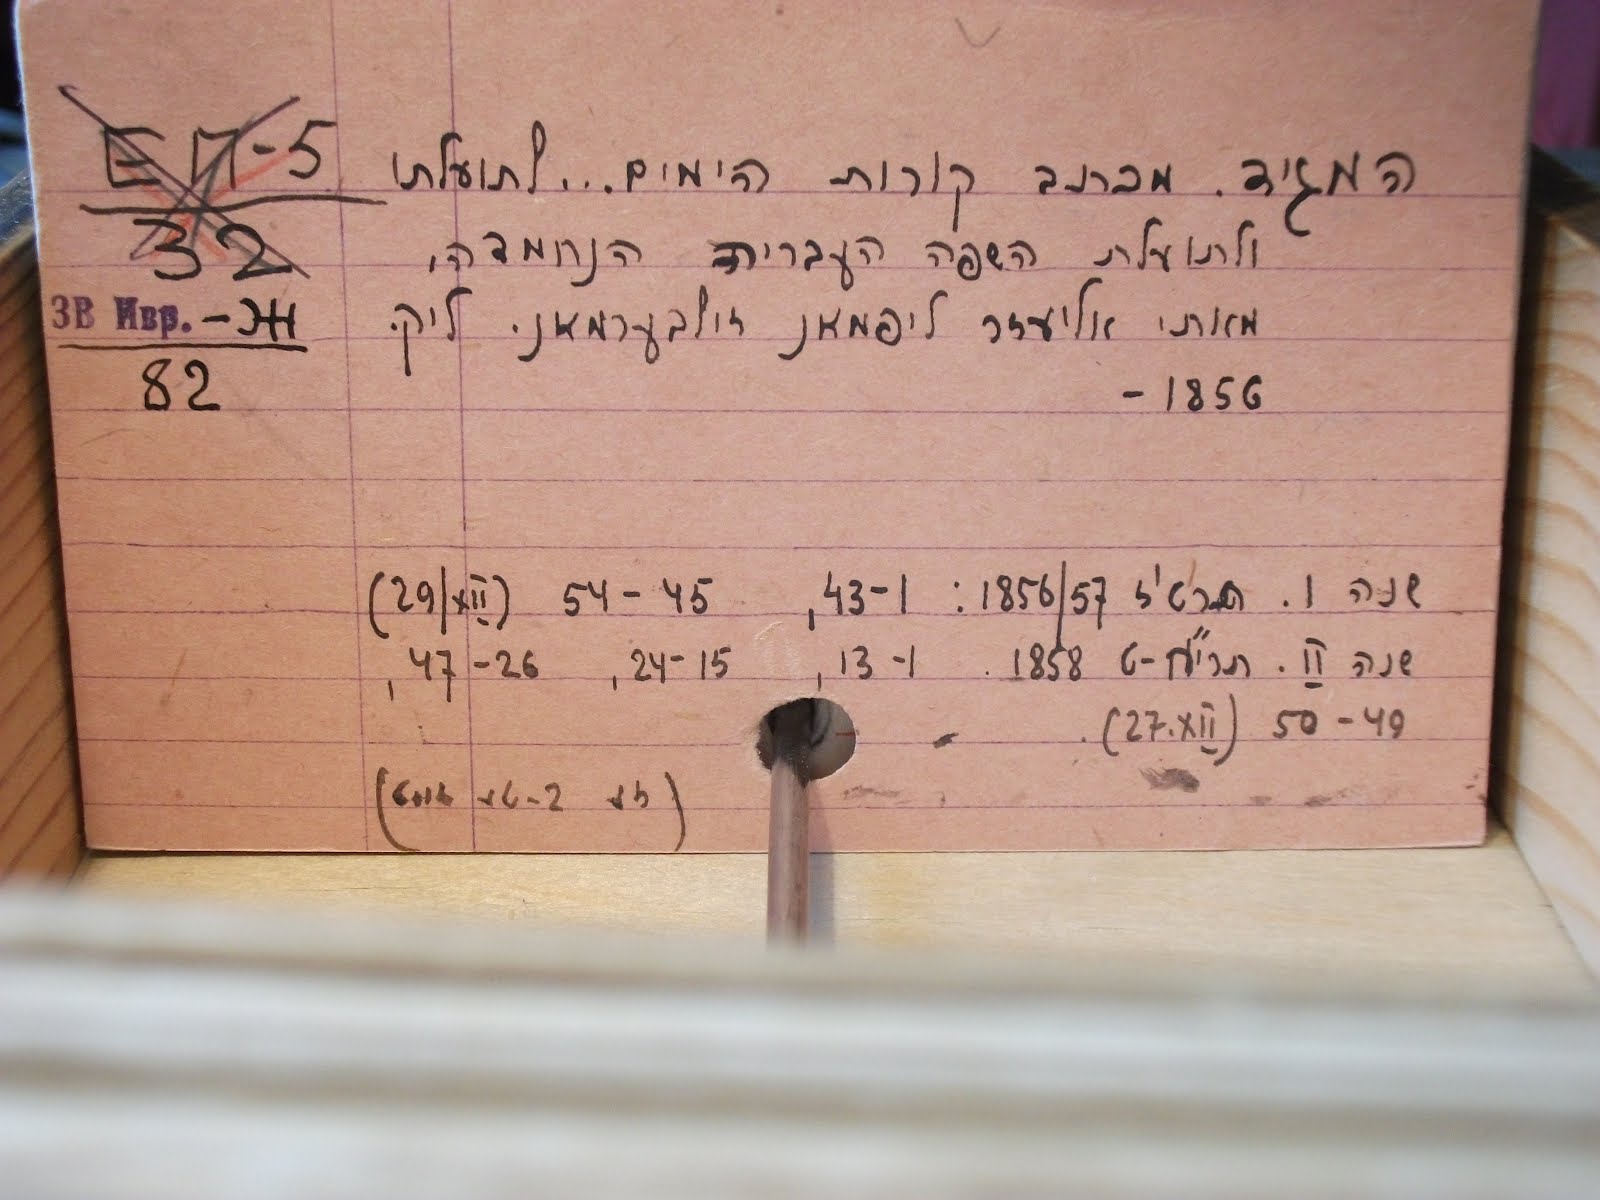 ЕП-5
32
ЗВ Ивр. -Ж
82
המגיד. מכתב קורות הימים... לתועלתו
ולתועלת השפה העברית הנחמדה,
מאתי אליעזר ליפמאן זילבערמאן. ליק.
1856 -
שנה I. תרט"ז 1856/57 : 1-43, 45-54 (29/XII)
שנה II. תרי"ח-ט 1858. 1-13, 15-24, 26-47,
49-50 (27.XII).